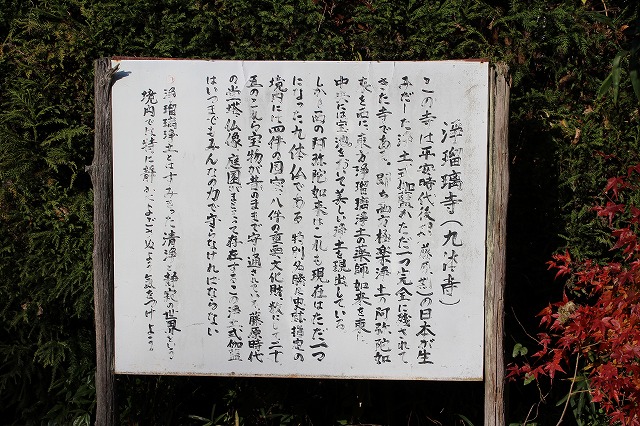 浄瑠璃寺(九体寺)
この寺は平安時代後期(藤原期)の日本が生
みだした浄土式伽藍がただ一つ完全に残されて
きた寺である。即ち西に極楽浄土の阿弥陀如
来を 東に東方浄瑠璃浄土の薬師如来を
中央には宝池をおいて美しい浄土を現出している。
しかも西の阿弥陀如来はこれも現在はただ一つ
になった九体仏である 特別名勝及史跡指定の
境内には四件の国宝、八件の重要文化財 二十
のこれら宝物が昔のままで守り通されている 藤原時代
の 塔 仏像 庭園がまとまって存在するこの浄土式伽藍
はいつまでもみんなの力で守らなければならない
浄瑠璃浄土とはすみきった清浄な静寂の世界をいう。
境内では特に静かによごさぬよう気をつけましょう。